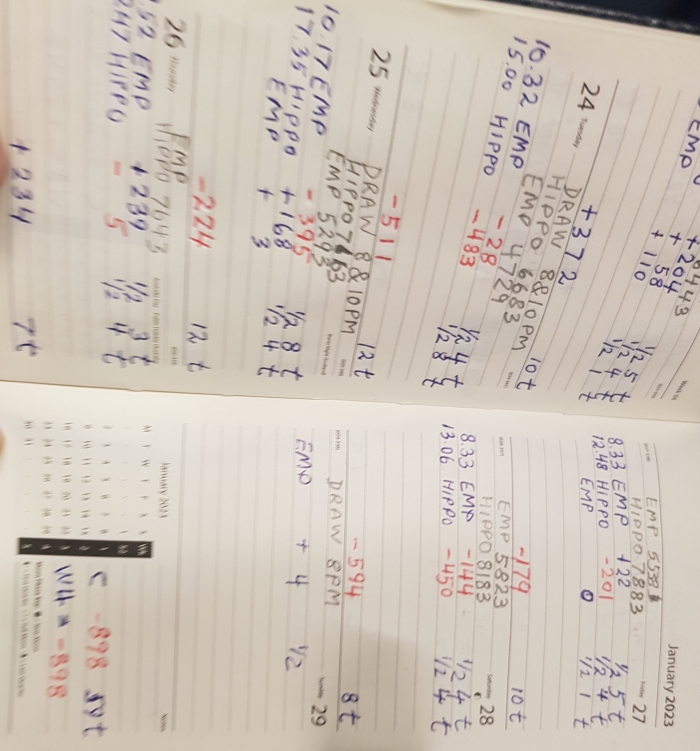 6443
EMP + 204 1/2 5 t
+ 58 1/2 4 t
+ 110 1/2 1 t
+372 10 t
24 Tuesday
DRAW 8&10PM
HIPPO 6683
EMP 4729
10.32 EMP -28 1/2 4 t
15.00 HIPPO -483 1/2 8 t
-511 12 t
25 Wednesday
DRAW 8&10PM
HIPPO
EMP 5293
10.17 EMP -395
17.35 HIPPO +168 1/2 8 t
EMP + 3 1/2 4 t
-224 12 t
26 Thursday
EMP
HIPPO 7643
.52 EMP +239 1/2 3 t
247 HIPPO - 5 1/2 4 t
+ 234 7t
January 2023
Friday 27
EMP
HIPPO 7883
8.33 EMP +22 1/2 5 t
12.48 HIPPO -201 1/2 4 t
EMP 0 1/2 1 t
-179 10 t
EMP 5823
Saturday 28
HIPPO 8183
8.33 EMP -144 1/2 4 t
13.06 HIPPO -450 1/2 4 t
-594 8 t
Sunday 29
DRAW 8PM
EMP + 4 1/2
January 2023
Notes
M T W T F S S Wk
C -898 59t
W4 = -898